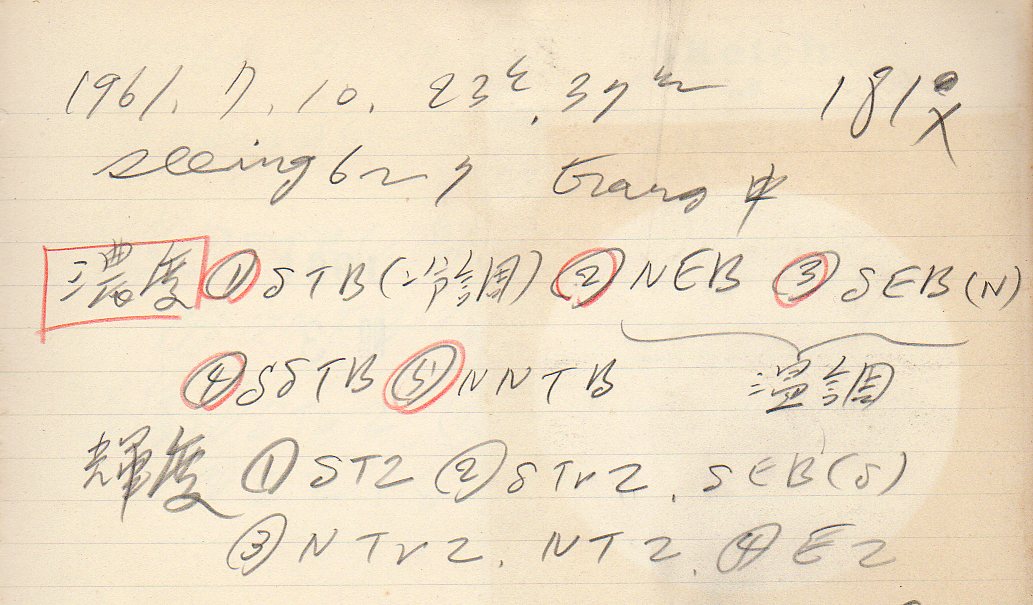 1961. 7. 10. 23h. 37m 181×
seeing 6~7 trans 中
濃度 ① STB(冷調) ② NEB ③ SEB(N)
④ SSTB ⑤ NNTB 温調
輝度 ① STZ ② STrZ. SEB(S)
③ NTrZ. NTZ. ④ EZ